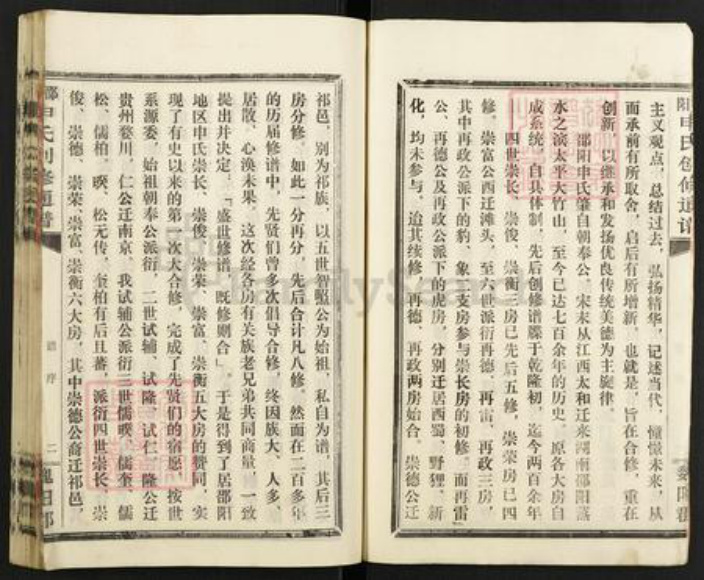 阳申氏创修通谱
主义观点，总结过去，弘扬精华，记述当代，憧憬未来，从
而承前有所取舍，启后有所增新，也就是，旨在合修，重在
创新，以继承和发扬优良传统美德为主旋律。
邵阳申氏肇自朝奉公，宋末从江西太和迁来湖南邵阳蒸
水之滨太平大竹山，至今已达七百余年的历史，原各大房自
成系统，自具体制，先后创修谱牒于乾隆初，迄今两百余年
四世崇长、崇俊、崇衡三房已先后五修，崇荣房已四
修，崇富公西迁滩头，至六世派衍再德、再雷、再政三房，
其中再政公派下的豹、象二支房参与崇长房的初修，而再雷
公、再德公及再政公派下的虎房，分别迁居西蜀、野狸、新
化，均未参与，迨其续修，再德、再政两房始合，崇德公迁
祁邑，别为祁族，以五世智聪公为始祖，私自为谱，其后三
房分修，如此一分再分，先后合计凡八修，然而在二百多年
的历届修谱中，先贤们曾多次倡导合修，终因族大、人多、
居散、心涣未果，这次经各房有关族老兄弟共同商量，一致
提出并决定，「盛世修谱，既修则合」，于是得到了居邵阳
地区申氏崇长、崇俊、崇荣、崇富、崇衡五大房的赞同，实
现了有史以来的第一次大合修，完成了先贤们的宿愿，按世
系源委，始祖朝奉公派衍，二世试辅、试隆、试仁，隆公迁
贵州婺川，仁公迁南京，我试辅公派衍三世儒暌、儒奎、儒
松、儒柏，暌、松无传，奎柏有后且蕃，派衍四世崇长、崇
俊、崇德、崇荣、崇富、崇衡六大房，其中崇德公裔迁祁邑，
申氏创修通谱
谱序
二